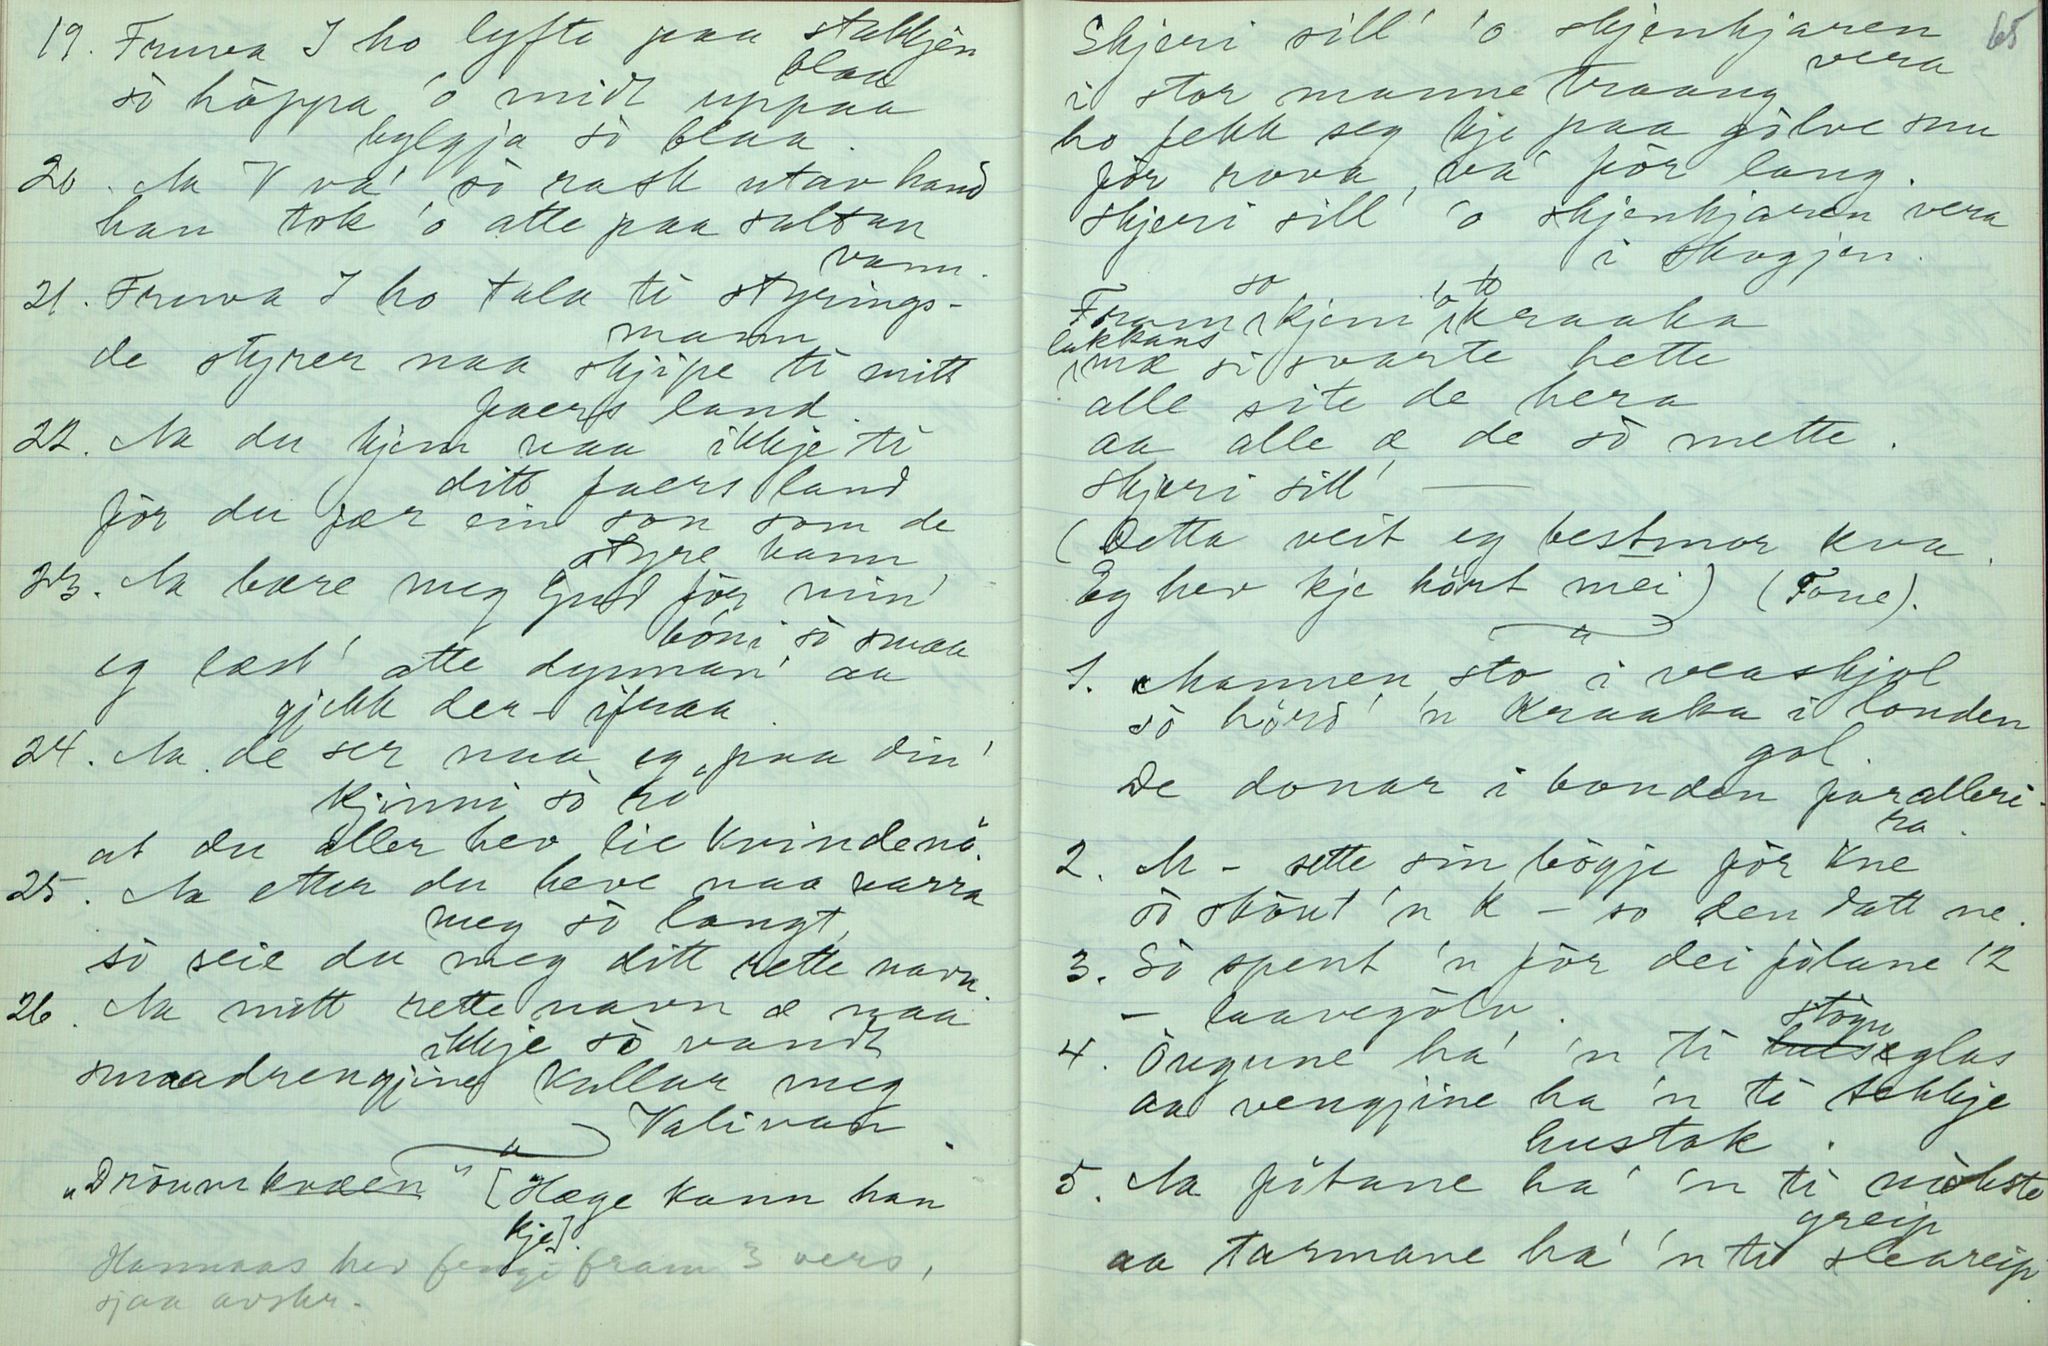 19. Fruva I ho lyfta paa stakkjen
blaa
so höppa 'o midt uppaa
bylgja so blaa.
20. Aa V va' so rask utav hand
han tok 'o atte paa saltan
vann.
21. Fruva I ho tala ti styrings-
mann
de styrer naa skjipe ti mitt
faers land.
22. Aa du kjem naa ikkje ti
ditt faers land
för du fær ein son som de
styre kann
23. Aa bære meg Gud för min'
böni so smaa
eg læst' atte dynnan' aa
gjekk der-ifraa.
24. Aa de ser naa eg paa din'
kjinni so ro
at du aller hev lie kvindenö.
25. Aa etter du heve naa narra
meg so langt,
so seie du meg ditt rette navn.
26. Aa mitt rette navn æ naa
ikkje so vandt
smaadrengjine kallar meg
Valivan.
"Dröumkvæen" [Hæge kann han
kje].
Hannaas hev fengi fram 3 vers,
sjaa avskr.
65
Skjeri sill' 'o skjenkjaren
vera
i stor manne traang
ho fekk seg kje paa gölve snu
för rova va' för lang.
skjeri sill' 'o skjenkjaren vera
i skogjen.
Fram so kjem 'o to kraaka
lakkans
mæ si svarte hette
alle site de hera
aa alle æ de so mette.
skjeri sill' —
(Detta veit eg bestmor kva.
Eg hev kje hört mei) (Tone).
1. Mannen sto i veaskjol
so hörd' 'n kraaka i londen
gol.
De donar i bonden faralleri-
ra.
2. M - sette sin bögje för kne
so sköut 'n k - so den datt ne.
3. So spent 'n för dei fölane 12
- laavegölv.
4. Öugune ha' 'n ti stöguglas
aa vengjine ha 'n ti tekkje
hustak.
5. Aa fötane ha' 'n ti möksto
greip
aa tarmane ha' 'n ti sleareip